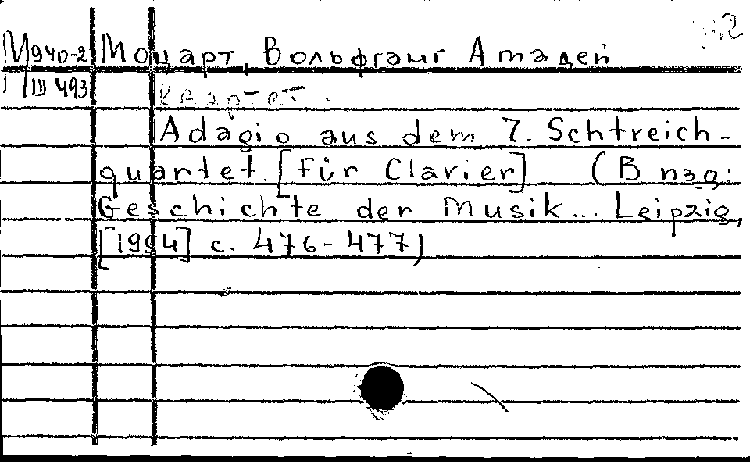 М940-2 Моцарт, Вольфганг Амадей
III 493 Квартет.
Adagio aus dem 7. Schtreich-
quartet [Für Clavier] (В изд:
Geschichte der Musik... Leipzig,
[1994] с. 476-477)